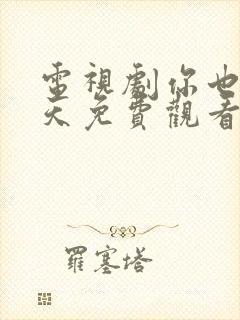 電視劇你也
天免費觀看
羅塞塔